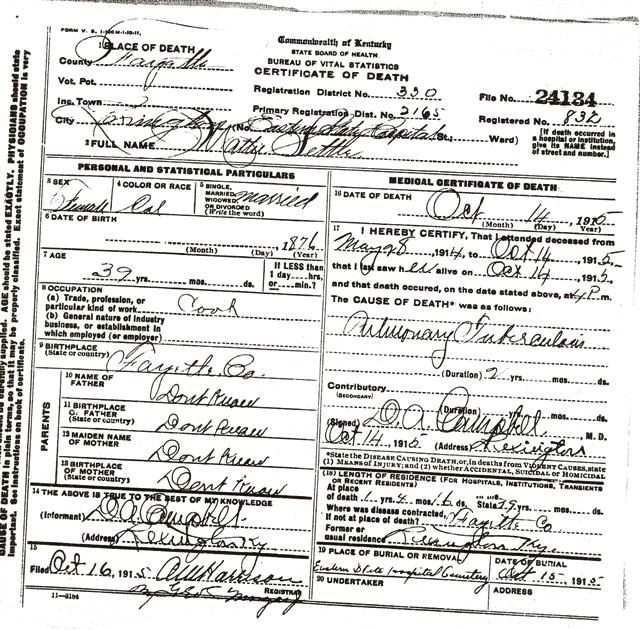 FORM V. S. 1-100M-1-10-11.
Commonwealth of Kentucky
STATE BOARD OF HEALTH
BUREAU OF VITAL STATISTICS
CERTIFICATE OF DEATH
1 PLACE OF DEATH
County Fayette
Vot. Pct.
Inc. Town
City Lexington (No. Eastern State Hospital St.; Ward)
2 FULL NAME Mattie
Registration District No. 330
Primary Registration Dist. No. 2165
File No. 24134
Registered No. 832
[If death occurred in
a hospital or institution,
give its NAME instead
of street and number.]
PERSONAL AND STATISTICAL PARTICULARS
3 SEX Female
4 COLOR OR RACE Col
5 SINGLE, MARRIED, WIDOWED OR DIVORCED (Write the word) married
6 DATE OF BIRTH
1876
(Month) (Day) (Year)
7 AGE
39 yrs. mos. ds.
If LESS than
1 day, hrs.
or min.?
8 OCCUPATION
(a) Trade, profession, or
particular kind of work Cook
(b) General nature of industry
business, or establishment in
which employed (or employer)
9 BIRTHPLACE
(State or country) Fayette Co.
PARENTS
10 NAME OF
FATHER Dont Know
11 BIRTHPLACE
O. FATHER
(State or country) Dont Know
12 MAIDEN NAME
OF MOTHER Dont Know
13 BIRTHPLACE
OF MOTHER
(State or country) Dont Know
14 THE ABOVE IS TRUE TO THE BEST OF MY KNOWLEDGE
(Informant) D.A. Campbell
(Address) Lexington Ky
15
Filed Oct 16, 1915 Harrison
REGISTRAR
11-3184
MEDICAL CERTIFICATE OF DEATH
16 DATE OF DEATH
Oct 14, 1915
(Month) (Day) (Year)
17 I HEREBY CERTIFY, That I attended deceased from
May 8 1914, to Oct 14 1915,
that I last saw her alive on Oct 14 1915,
and that death occurred, on the date stated above, at 4 P.m.
The CAUSE OF DEATH* was as follows:
Pulmonary Tuberculosis
(Duration) 2 yrs. mos. ds.
Contributory
(SECONDARY)
(Duration) yrs. mos. ds.
(Signed) D. A. Campbell M. D.
Oct 14 1915 (Address) Lexington
*State the DISEASE CAUSING DEATH, or, in deaths from VIOLENT CAUSES, state
(1) MEANS OF INJURY; and (2) whether ACCIDENTAL, SUICIDAL or HOMICIDAL
(18) LENGTH OF RESIDENCE (FOR HOSPITALS, INSTITUTIONS, TRANSIENTS
OR RECENT RESIDENTS)
At place
of death 1 yrs. 4 mos. 6 ds. State 39 yrs. mos. ds.
Where was disease contracted,
If not at place of death? Fayette Co
Former or
usual residence Lexington Ky.
19 PLACE OF BURIAL OR REMOVAL
Eastern State Hospital Cemetery
DATE OF BURIAL
Oct 15 1915
20 UNDERTAKER
ADDRESS
CAUSE OF DEATH in plain terms, so that it may be properly classified. Exact statement of OCCUPATION is very
important. See instructions on back of certificate.
AGE should be stated EXACTLY. PHYSICIANS should state